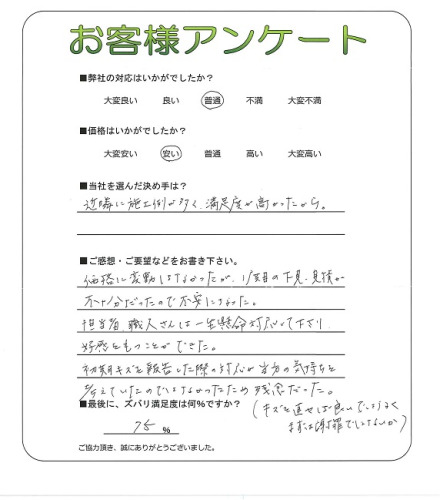 お客様アンケート
■弊社の対応はいかがでしたか?
大変良い 良い 普通 不満 大変不満
■価格はいかがでしたか?
大変安い 安い 普通 高い 大変高い
■当社を選んだ決め手は?
近隣に施工例が多く、満足度が高かったから。
■ご感想・ご要望などをお書き下さい。
価格に変動はなかったが、1度目の下見、見積が
不十分だったので不安になった。
担当者、職人さんは一生懸命対応して下さり
好感をもつことができた。
初期キズを報告した際の対応が当方の気持ちを
考えていたのではなかったため残念だった。
■最後に、ズバリ満足度は何%ですか?
(キズを直せば良いではなく
まずは謝罪ではないか)
75 %
ご協力頂き、誠にありがとうございました。